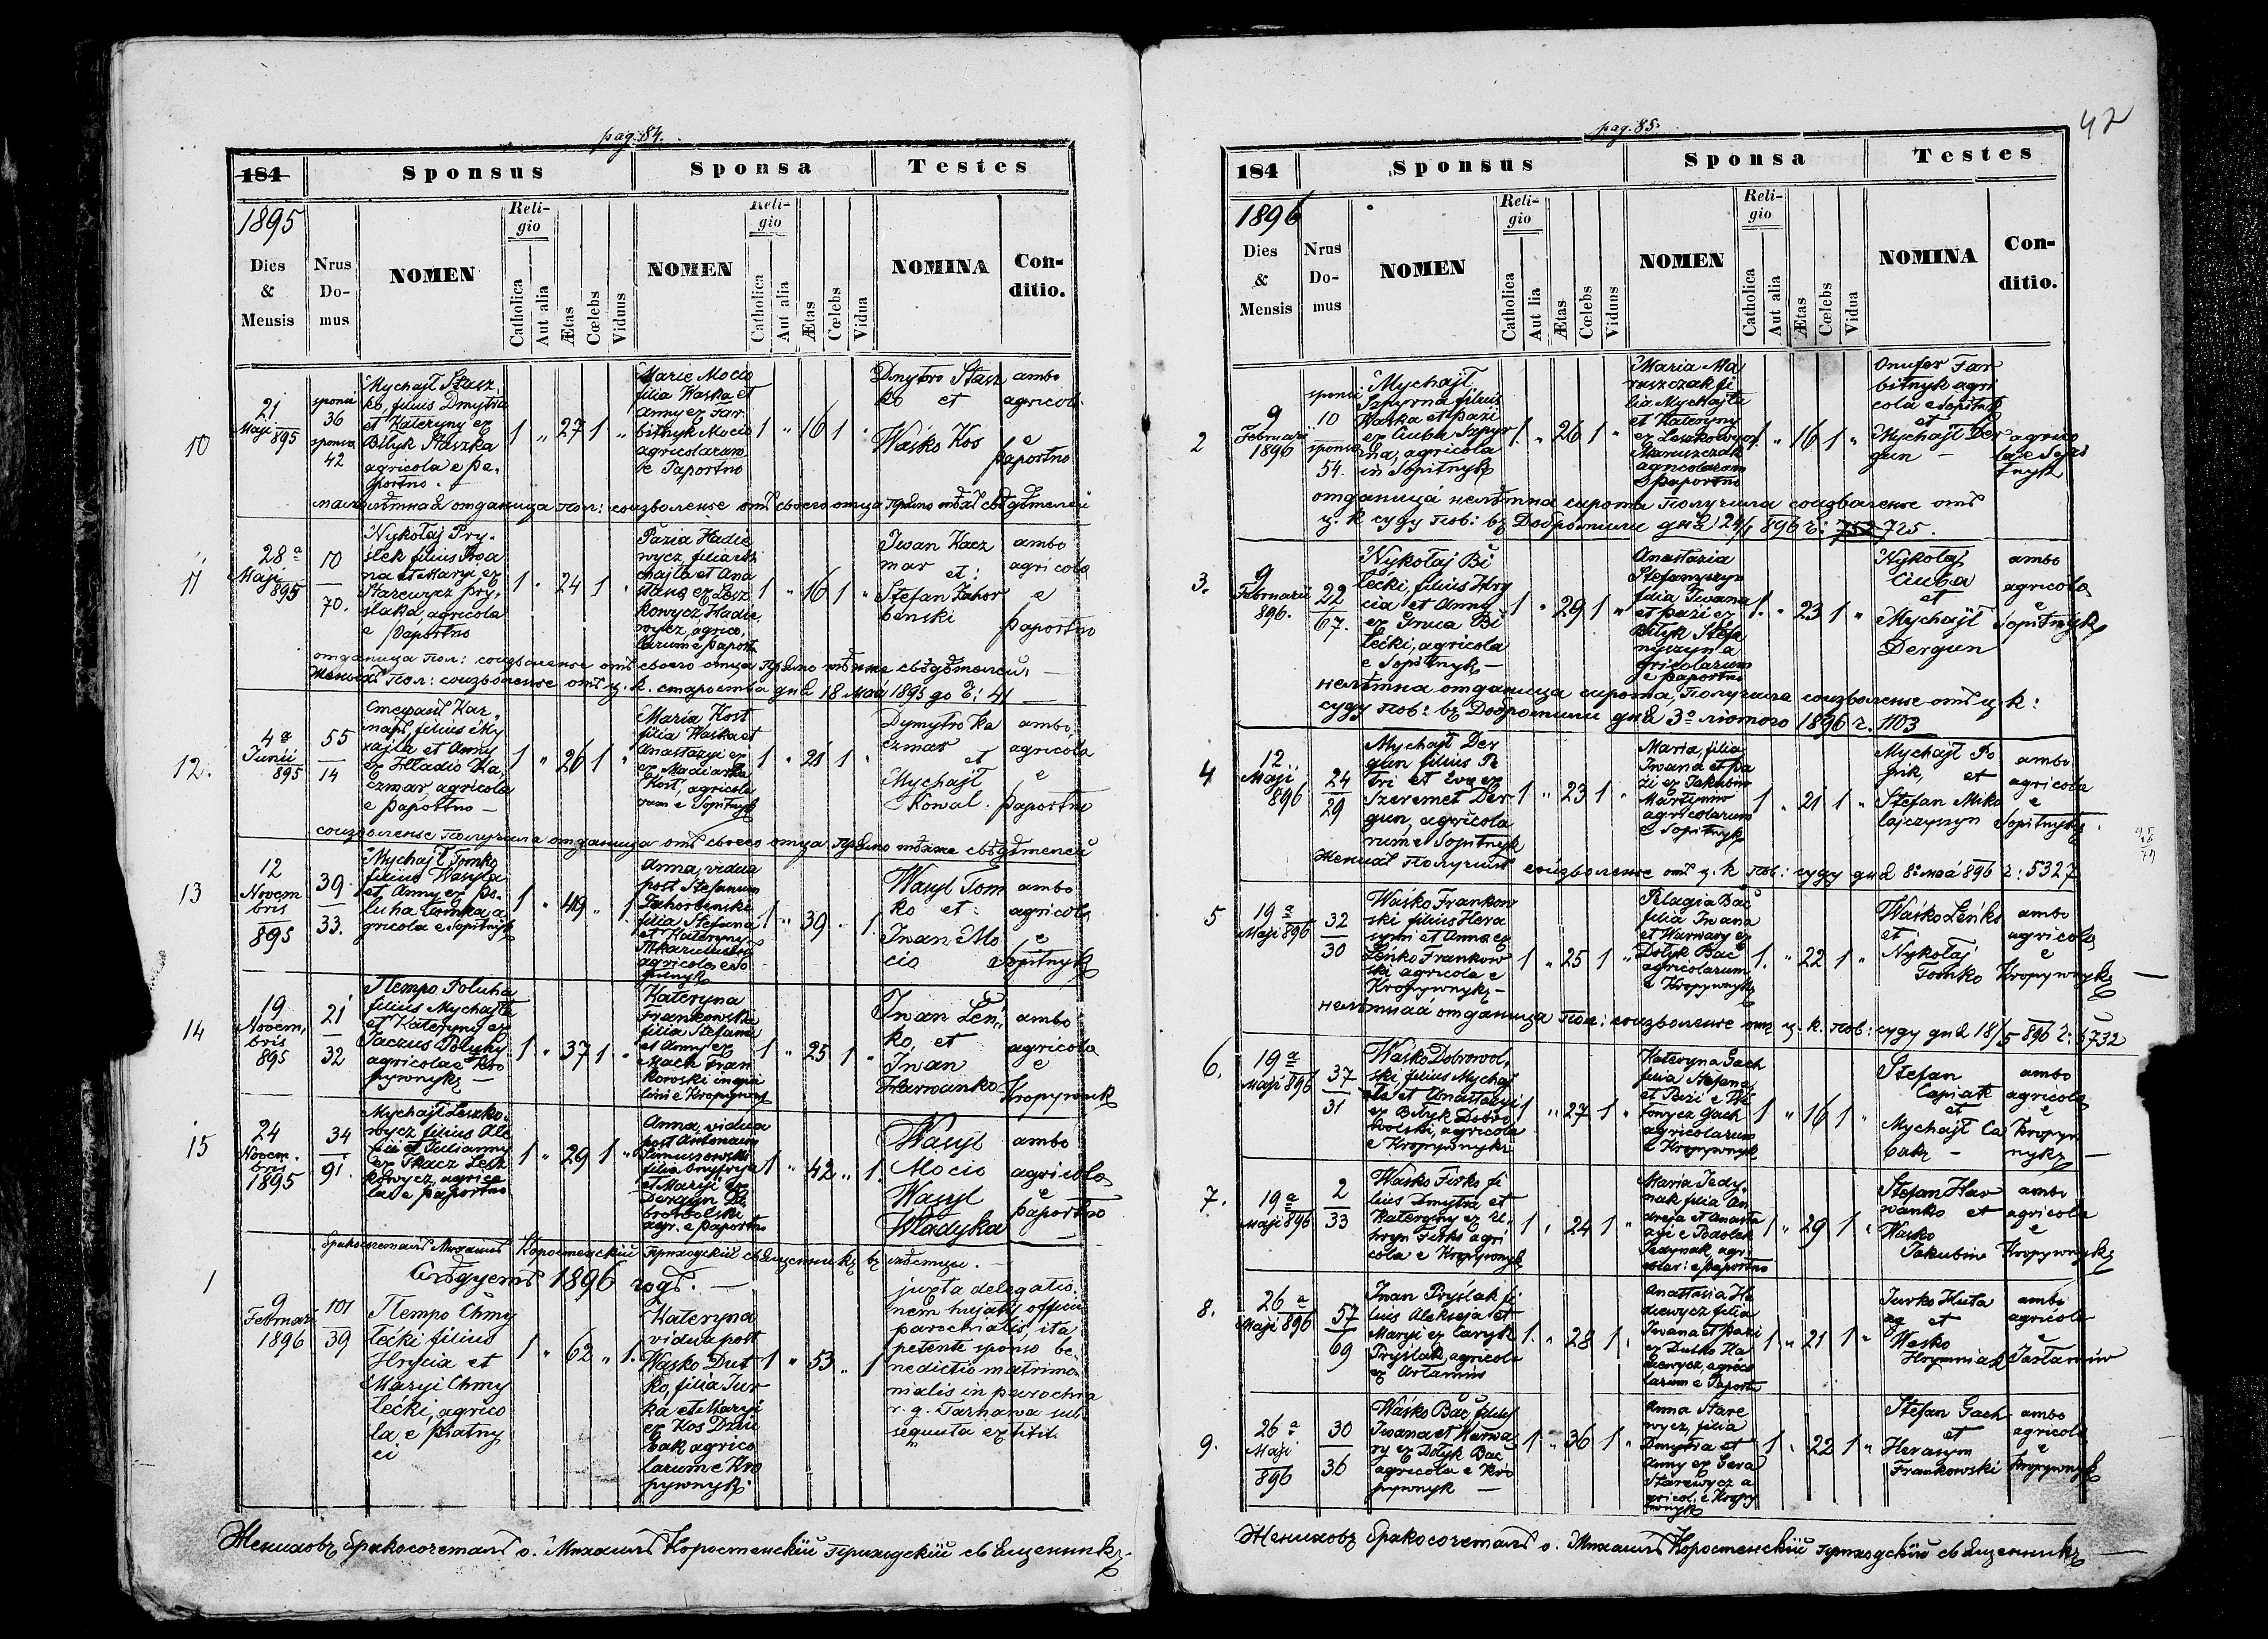 pag. 84.
184 Sponsus Sponsa Testes
1895
Dies & Mensis
Nrus Domus
NOMEN
Religio
Catholica
Aut alia
Ætas
Cœlebs
Viduus
NOMEN
Religio
Catholica
Aut alia
Ætas
Cœlebs
Vidua
NOMINA
Conditio.
10
21
Maji 895
sponsi
36
sponsa
42
Mychajł Stasz
ko, filius Dmytra
et Kateryny ex
Biłyk Staszka
agricola e Pa-
portno
1 „ 27 1 „
Marie Mocio
filia Waska et
Anny ex Har
bitnyk Mocio
agricolarum
e Paportno
1 „ 16 1 „
Dmytro Stasz
ko et
Waśko Kos
ambo
agricola
e
Paportno
11
28a
Maji 895
10
70.
Nykołaj Pry-
ślak filius Iwa
na et Maryi ex
Starewycz Pry-
ślaka, agricola
e Paportno
1 „ 24 1 „
Pazia Hadie
wycz, filia My
chajła et Ana
stazyi ex Lesz
kowycz Hadie
wycz, agrico
larum e Paport
1 „ 16 1 „
Iwan Kacz
mar et:
Stefan Zahor
benski
ambo
agricola
e
Paportno
12.
4a
Junii 895
55
14
Стефанъ Kaz
filius My
хайła et Anny
ex Hładio Ka
czmar, agricola
e Paportno —
1 „ 26 1 „
Maria Kost
filia Waska et
Anastazyi ex
ex Madiarka
Kost, agricola
rum e Sopitnyk
1 „ 21 1 „
Dymytro Ka
czmar
et
Mychajł
Kowal.
ambo
agricola
e
Paportno
13
12
Novem
bris
895
39.
33.
Mychajł Tomko
filius Wasyla
et Anny ex Po-
luha Tomka a
gricola e Sopitnyk
1 „ 49 „ 1.
Anna, vidua
post Stefanum
Zahorbenski
filia Stefana
et Kateryny
agricola e So
pitnyk
1 „ 39 „ 1.
Wasyl Tom
ko et:
Iwan Mo
cio
ambo
agricola
e
Sopitnyk
14
19
Novem,
bris
895
21
32
Петро Poluha
filius Mychajła
et Kateryny ex
Jaczus Poluhy
agricola e Kro
pywnyk —
1 „ 37 1 „
Kateryna
Frankowska
filia Stefana
et Anny ex
Mach Fran
kowski inqui
lini e Kropywnyk
1 „ 25 1 „
Iwan Leń,
ko, et
Iwan
Harwanko
ambo
agricola
e
Kropywnyk
15
24
Novem.
bris
1895
34
91.
Mychajł Leszko
wycz filius Ale
xii et Julianny
ex Tkacz Lesz
kowycz, agrico
la e Paportno
1 „ 29 1 „
Anna, vidua
post Antonium
filia Dmytryja
et Maryi ex
Dergun Do
browolski
agr. e Paportno
1 „ 42 „ 1.
Wasyl
Mocio
Wasyl
Władyka
ambo
agricola
e
Paportno
Слѣдуетъ 1896 годъ. —
1
9
Februari
1896
101
39
Петро Chmy
lećki filius
Hrycia et
Maryi Chmy
lećki, agrico
la e Piatny
ci
1 „ 62 „ 1.
Kateryna
vidua post
Wasko Dut
ko, filia Jur
ka et Maryi
ex Kos Dziu
bak agrico
larum e Kro
pywnyk.
1 „ 53 „ 1
juxta delegatio-
nem hujaty officii
parochialis, ita
petente sponso be-
nedictio matrimo-
nialis in parochia
r. g. Tarnawa sub-
sequuta extitit.
Жениховъ бракосочеталъ о. Михаилъ Коростенскій приходскій священникъ.
pag. 85.
42
184 Sponsus Sponsa Testes
1896
Dies & Mensis
Nrus Domus
NOMEN
Religio
Catholica
Aut lia
Ætas
Cœlebs
Viduus
NOMEN
Religio
Catholica
Aut alia
Ætas
Cœlebs
Vidua
NOMINA
Conditio.
2
9
Februarii
1896
sponsi
10
sponsa
54.
Mychajł
Szpyrna filius
Waśka et Pazi
ex Ciuba Szpyr
na, agricola
in Sopitnyk
1. „ 26 1 „
Maria Ma
ruszczak fi
lia Mychajła
et Kateryny
ex Leszkowycz
Maruszczak
agricolarum
e Paportno
1 „ 16 1 „
Onufer Far
bitnyk agri
cola e Sopitnyk
et
Mychajł Der
gun —
agrico
la e Sopi
tnyk
отданица нелѣтна сирота получила соизволение отъ
ц. к суду пов: въ Добромили дня 24/1 896 ч: 752 725.
3.
9
Februarii
896.
22
67.
Nykołaj Bi
lećki, filius Hry
cia et Anny
ex Hnua Bi
lećki, agricola
e Sopitnyk —
1 „ 29 1 „
Anastazia
Stefanyszyn
filia Iwana
et Pazi ex
Biłyk Stefa
nyszyn a
gricolarum
e Paportno
1. „ 23 1 „
Nykołaj
Ciuba
et
Mychajł
Dergun
ambo
agricola
e
Sopitnyk
нелѣтна отданица сирота, получила соизволение отъ ц. к:
суду пов: въ Добромили дня 3о лютого 1896 ч. 1103
4
12
Maji
896
24
29
Mychajł Der
gun filius Pe
tri et Evy ex
Szeremet Der
gun, agricola
rum e Sopitnyk
1 „ 23 1 „
Maria, filia
Iwana et Pa
zi ex Jakubiw
Martyniw
agricolarum
e Sopitnyk
1 „ 21 1 „
Mychajł Po
pik, et
Stefan Miko
lajczyszyn
ambo
agricola
e
Sopitnyk.
Женихъ получилъ соизволение отъ ц. к пов: суду дня 8о мая 896 ч: 5327
5
19a
Maji 896
32
30
Waśko Frankow
ski filius Hera
symi et Anna ex
Leńko Frankow
ski agricola e
Kropywnyk —
1 „ 25 1 „
Pelagia Bać
filia Iwana
et Warwary ex
Dołyk Bać
agricolarum
e Kropywnyk
1. „ 22 1 „
Waśko Leńko
et
Nykołaj
Tomko
ambo
agricola
e
Kropywnyk
нелѣтная отданица пол: соизволение отъ ц. к. пов: суду дня 18/5 896 ч: 5732
6.
19a
Maji 896
37
31
Waśko Dobrowol,
ski, filius Mychaj
ła et Anastazyi
ex Biłyk Dobro
wolski, agricola
e Kropywnyk
1 „ 27 1 „
Kateryna Gach
filia Stefana
Gach
agricolarum
e Kropywnyk
1 „ 16 1 „
Stefan
Capiak
et
Mychajł Ca
bak —
ambo
agricola
e
Kropyw
nyk —
7.
19a
Maji 896
2
33
Wasko Firko fi
lius Dmytra et
Kateryny ex
Firko agri
cola e Kropywnyk
1 „ 24 1 „
Maria Jedy,
nak filia An
dreja et Anasta
zyi e Podolak
Jedynak, agr
colar: e Paportno
1 „ 29 1 „
Stefan Har
wanko et
Wasko
Jakubiw
ambo
agricola
e
Kropywnyk
8.
26a
Maji 896
57
69
Iwan Pryślak fi
lius Alekseja et
Maryi ex Caryk
Pryślak, agricola
ex Artamiw
1. „ 28 1 „
Anastasia Ha
diewycz filia
Iwana et Pazi
ex Dutko Ha
diewycz, agrico
larum e Paportn
1 „ 21 1 „
Jurko Huta
et
Wasko
Hrymniak
ambo
agricola
9.
26a
Maji
896
30
36
Waśko Bać filius
Iwana et Warwa
ry ex Dołyk Bać
agricola e Kro
pywnyk —
1 „ 36 1 „
Anna Stare
wycz, filia
Dmytra et
Anny ex Gera
Starewycz a
gricol. e Kropy
wnyk
1 „ 22 1 „
Stefan Gach
et
Herasym
Frankowski
ambo
agricola
e
Kropywnyk
Жениховъ бракосочеталъ о. Михаилъ Коростенскій приходскій священникъ —